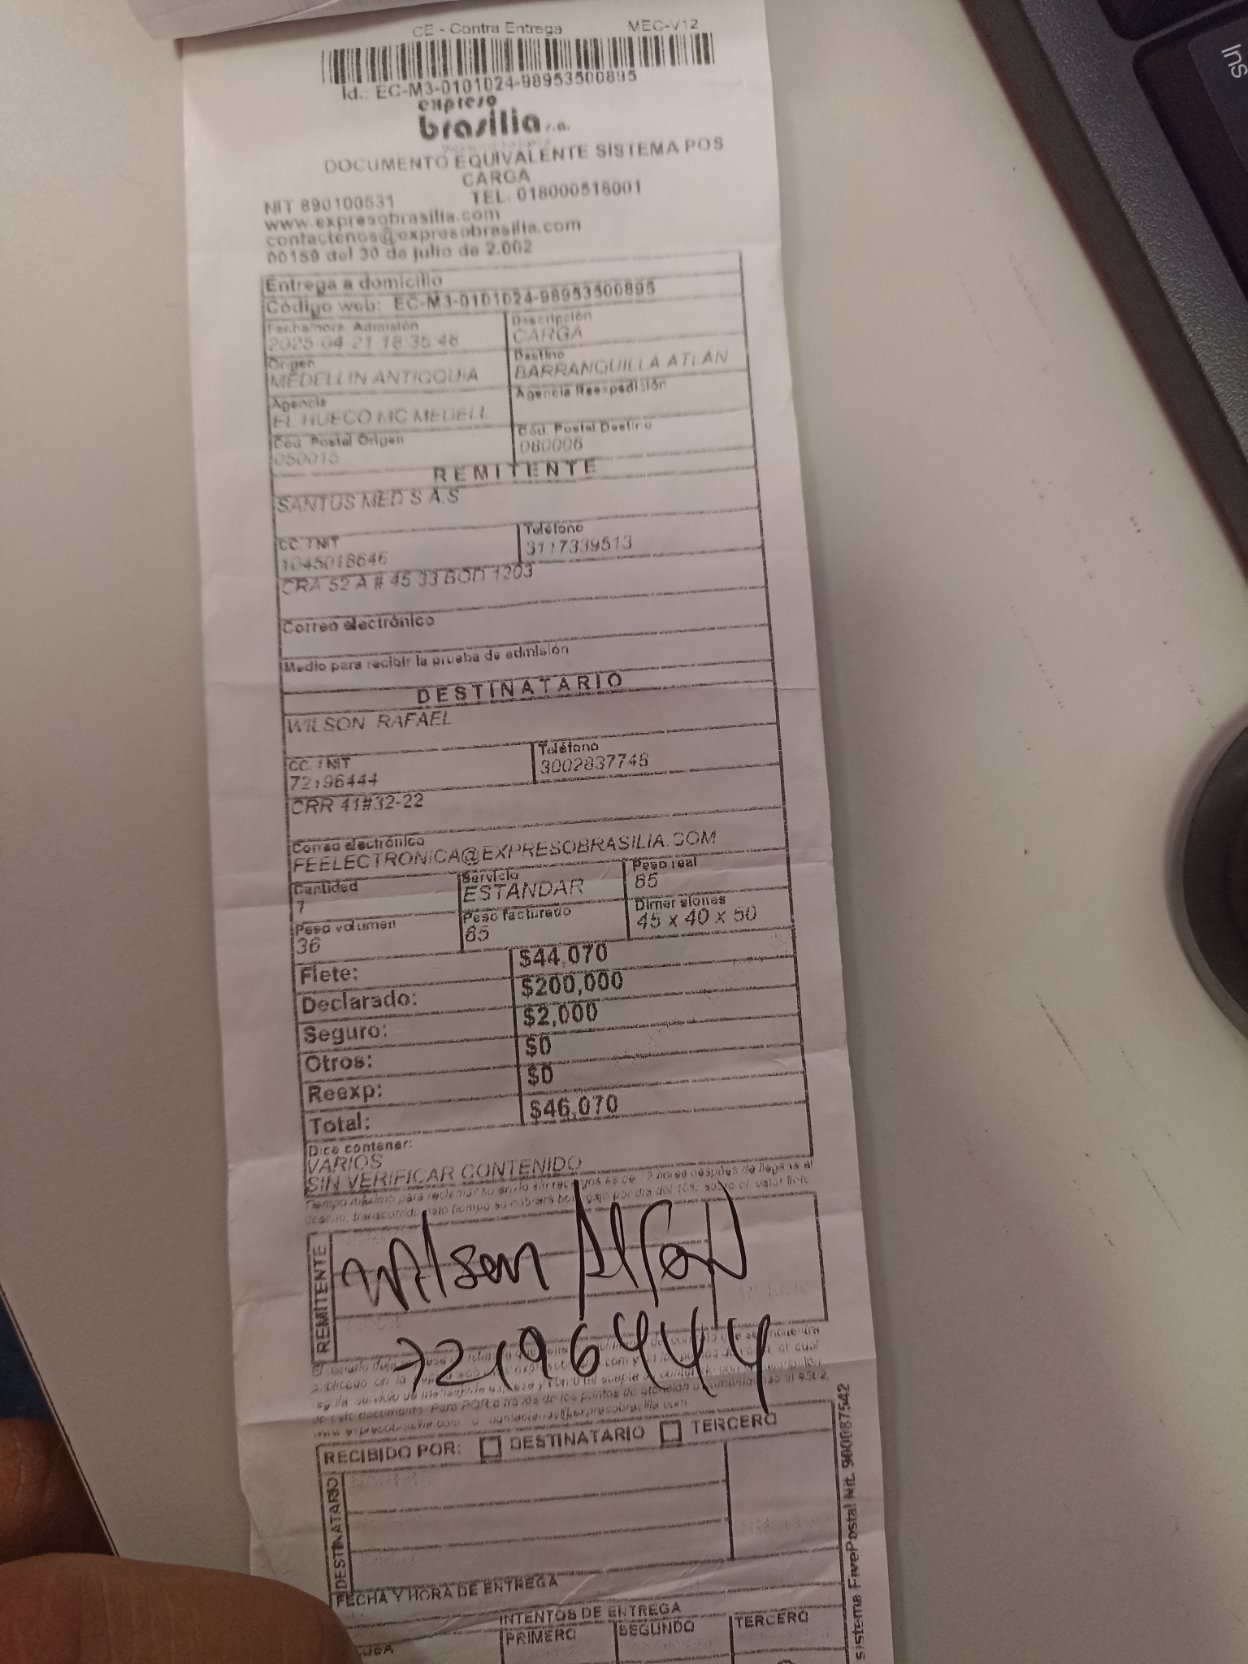 CE - Contra Entrega MEC-V12
Id.: EC-M3-0101024-98953500895
expreso
brasilia s.a.
DOCUMENTO EQUIVALENTE SISTEMA POS
CARGA
NIT 890100531 TEL. 018000518001
www.expresobrasilia.com
contactenos@expresobrasilia.com
00159 del 30 de julio de 2.002
Entrega a domicilio
Código web: EC-M3-0101024-98953500895
Fecha/hora Admisión Descripción
2025-04-21 18:35:46 CARGA
Origen Destino
MEDELLIN ANTIOQUIA BARRANQUILLA ATLAN
Agencia Agencia Reexpedición
EL HUECO MC MEDELL
Cód. Postal Origen Cód. Postal Destino
050015 080006
REMITENTE
SANTUS MED S A.S
CC. / NIT Teléfono
1045018646 3117339513
CRA 52 A # 45 33 BOD 1203
Correo electrónico
Medio para recibir la prueba de admisión
DESTINATARIO
WILSON RAFAEL
CC. / NIT Teléfono
72196444 3002837748
CRR 41#32-22
Correo electrónico
FEELECTRONICA@EXPRESOBRASILIA.COM
Cantidad Servicio Peso real
1 ESTANDAR 65
Peso volumen Peso facturado Dimensiones
36 65 45 x 40 x 50
Flete: $44,070
Declarado: $200,000
Seguro: $2,000
Otros: $0
Reexp: $0
Total: $46,070
Dice contener:
VARIOS
SIN VERIFICAR CONTENIDO
REMITENTE
Wilson
72196444
RECIBIDO POR: DESTINATARIO TERCERO
DESTINATARIO
FECHA Y HORA DE ENTREGA
INTENTOS DE ENTREGA
PRIMERO SEGUNDO TERCERO
sistema FivePostal Nit. 900087542
Ins